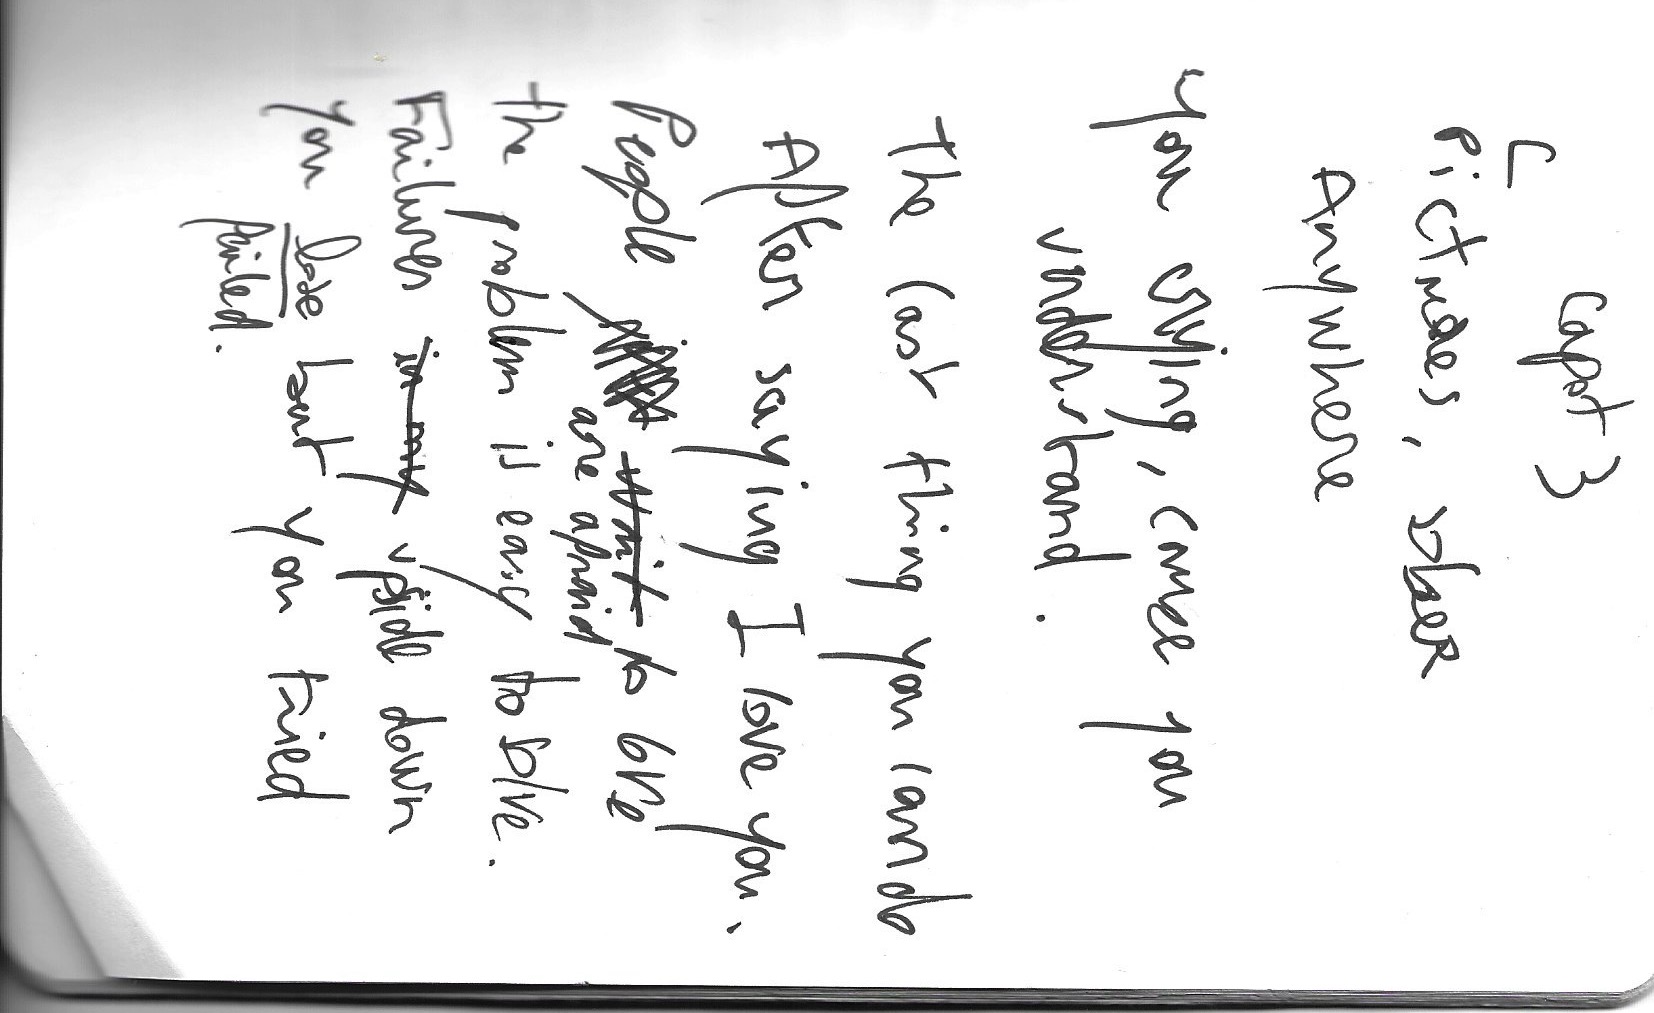 Capot 3
Pictures, sber
Anywhere
You crying, cause you
understand.
The last thing you can do
After saying I love you.
People are afraid to love
The problem is easy to solve.
Failures in my upside down
You lose but you tried
failed.